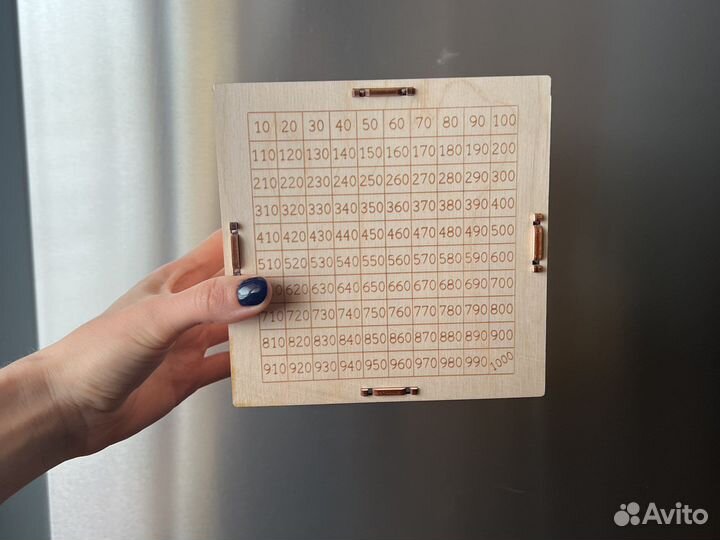 10 20 30 40 50 60 70 80 90 100
110 120 130 140 150 160 170 180 190 200
210 220 230 240 250 260 270 280 290 300
310 320 330 340 350 360 370 380 390 400
410 420 430 440 450 460 470 480 490 500
510 520 530 540 550 560 570 580 590 600
620 630 640 650 660 670 680 690 700
710 720 730 740 750 760 770 780 790 800
810 820 830 840 850 860 870 880 890 900
910 920 930 940 950 960 970 980 990 1000
Avito